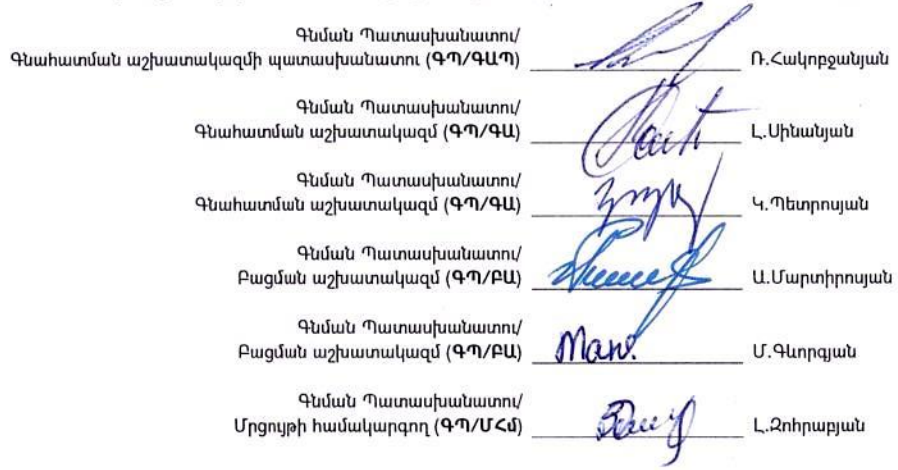 Գնման Պատասխանատու/
Գնահատման աշխատակազմի պատասխանատու (ԳՊ/ԳԱՊ) Ռ.Հակոբջանյան
Գնման Պատասխանատու/
Գնահատման աշխատակազմ (ԳՊ/ԳԱ) Լ.Սինանյան
Գնման Պատասխանատու/
Գնահատման աշխատակազմ (ԳՊ/ԳԱ) Կ.Պետրոսյան
Գնման Պատասխանատու/
Բացման աշխատակազմ (ԳՊ/ԲԱ) Ա.Մարտիրոսյան
Գնման Պատասխանատու/
Բացման աշխատակազմ (ԳՊ/ԲԱ) Մ.Գևորգյան
Գնման Պատասխանատու/
Մրցույթի համակարգող (ԳՊ/ՄՀմ) Լ.Զոհրաբյան